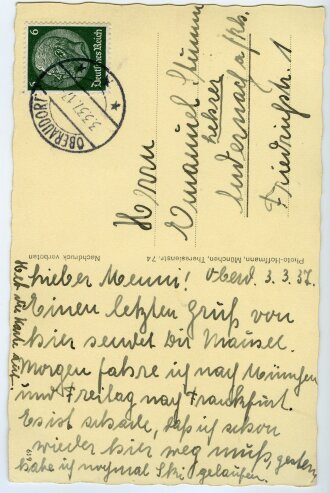 6
Deutsches Reich
OBERAUDORF
3.3.37.
Herrn
Emanuel Stumm
Lehrer
Andernach a/Rh.
Friedrichstr. 1
Photo-Hoffmann, München, Theresienstr. 74
Nachdruck verboten
Oberd. 3.3.37.
Lieber Menni!
Einen letzten Gruß von
hier sendet Dir Mausel.
Morgen fahre ich nach München
und Freitag nach Frankfurt.
Es ist schade, daß ich schon
wieder hier weg muß, gestern
habe ich nochmal Ski gelaufen.
Heb die Karte